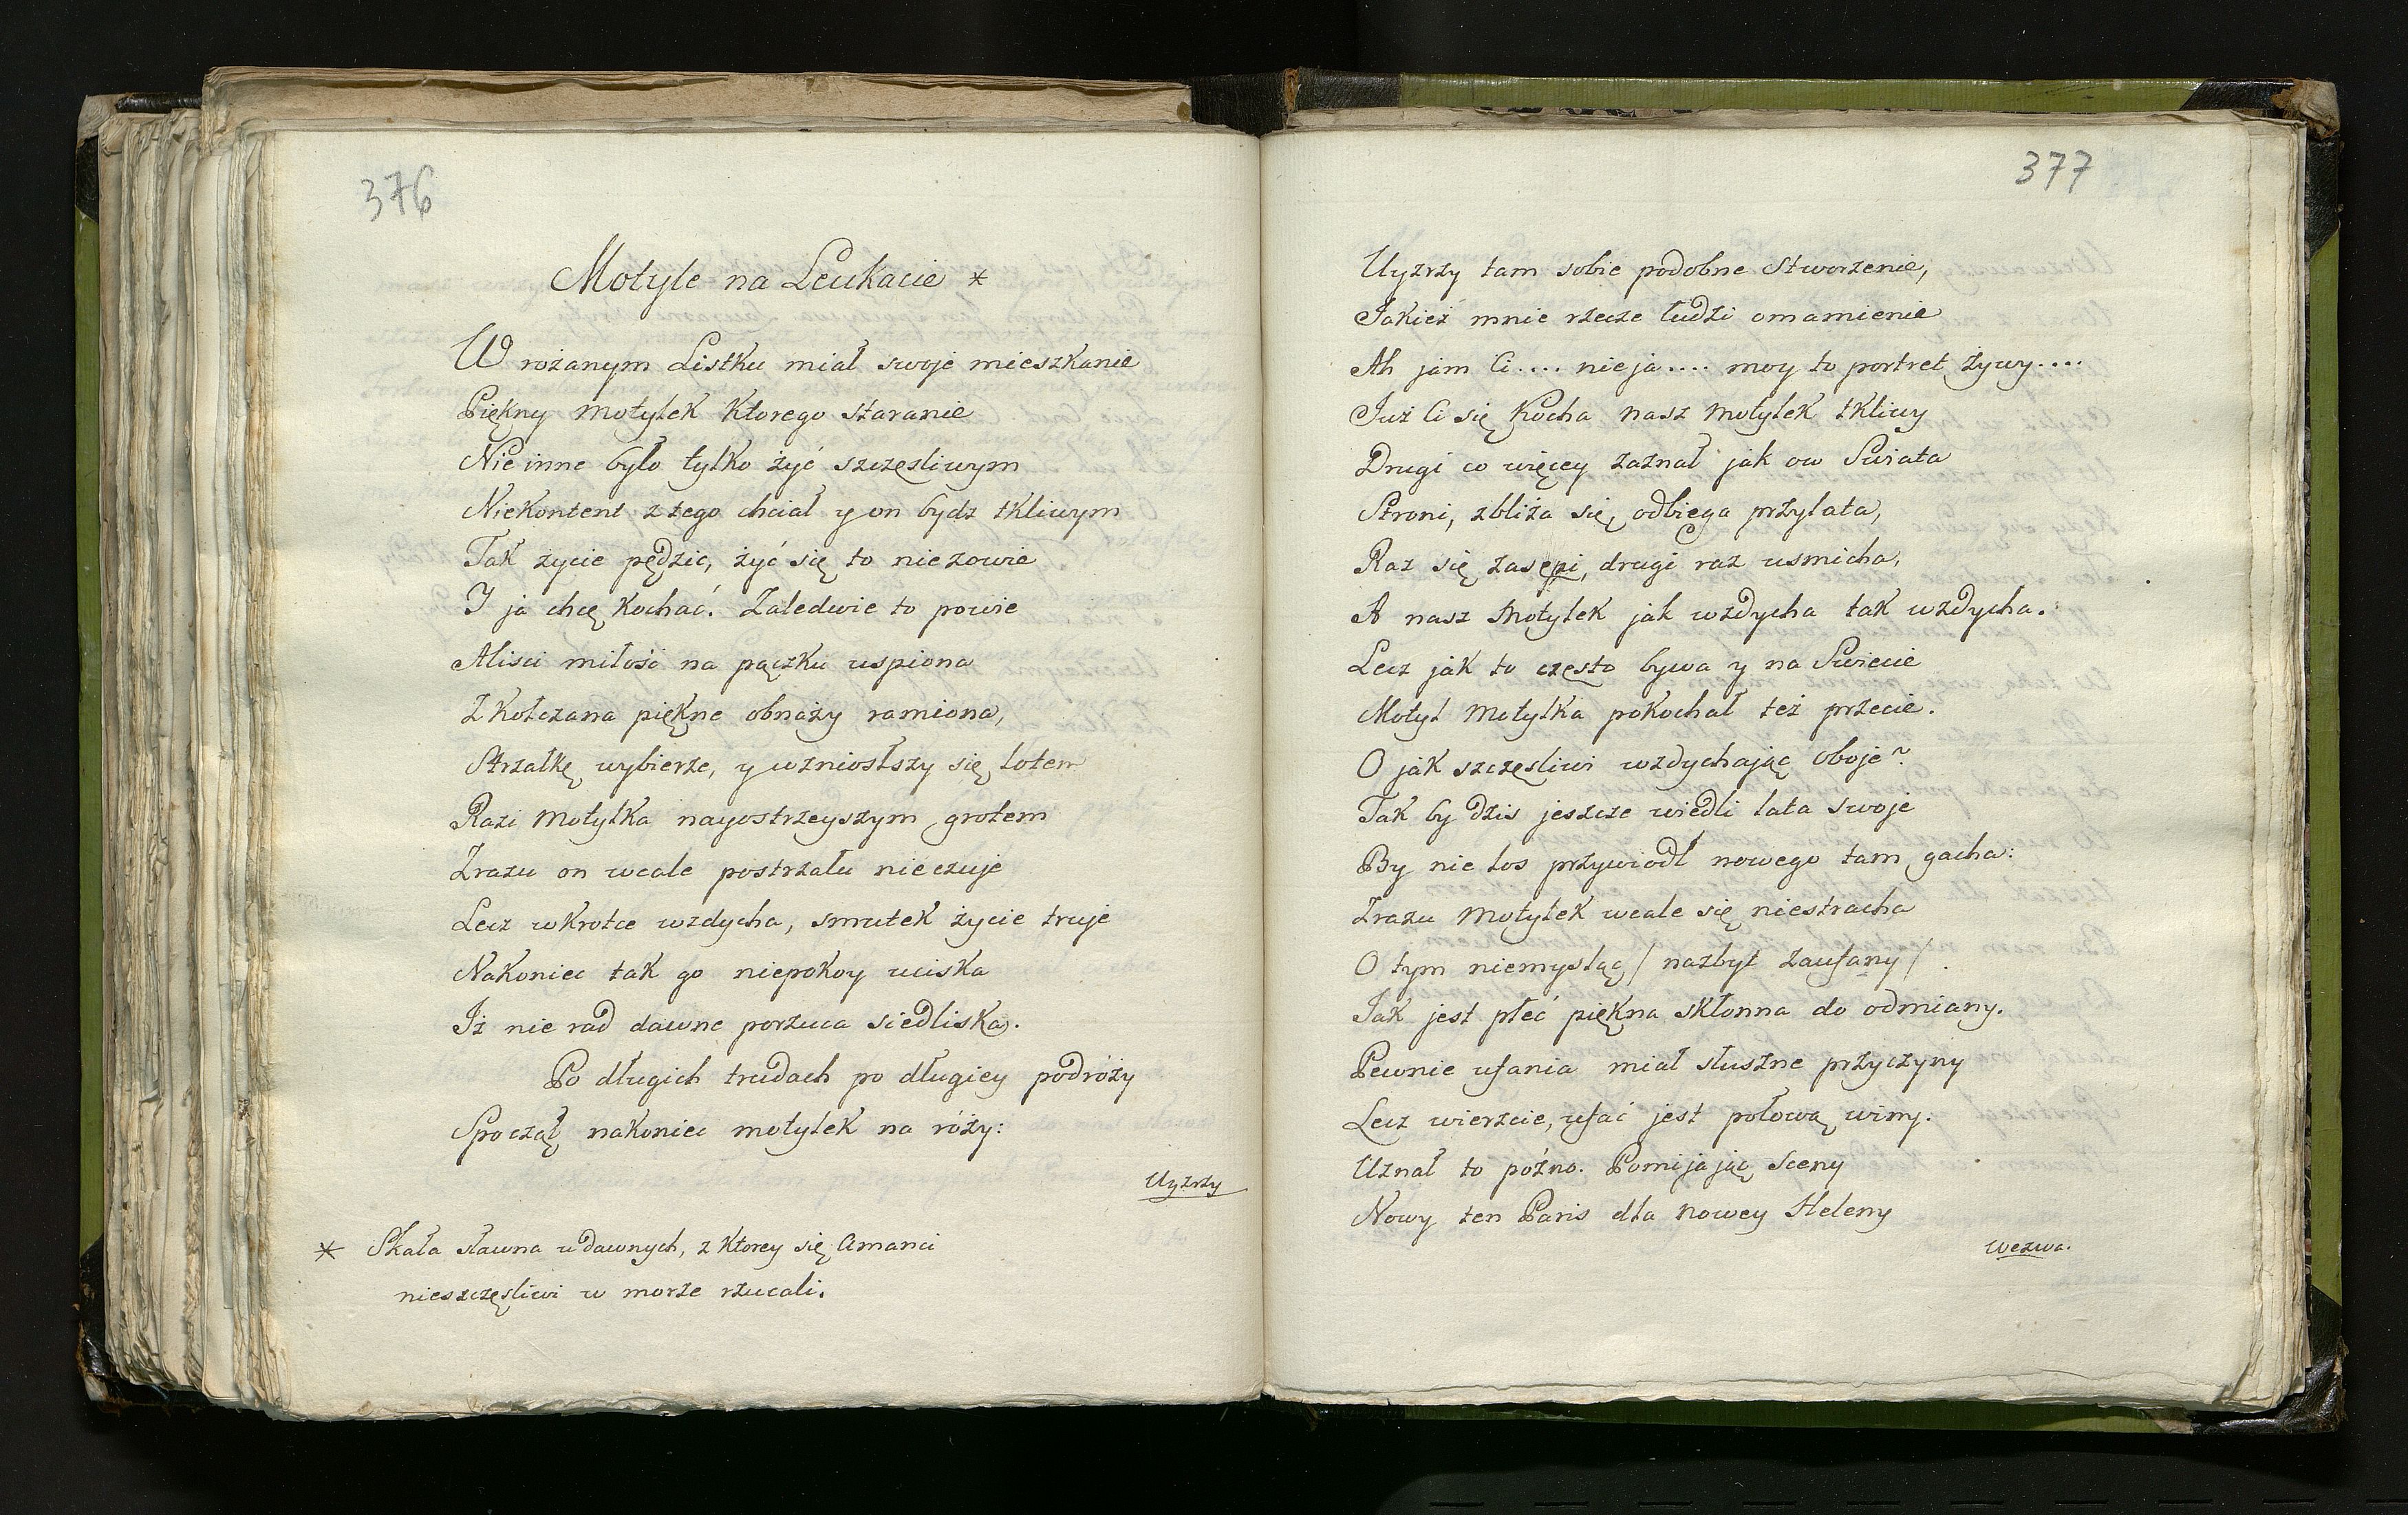 376
Motyle na Leukacie *
W rożanym Listku miał swoje mieszkanie
Piękny Motylek Ktorego staranie
Nie inne było tylko żyć szczęsliwym
Niekontent z tego chciał y on bydz tkliwym
Tak życie pędzic, żyć się to nie zowie
I ja chcę Kochać. Zaledwie to powie
Alisci miłość na pączku uspiona
Z Kołczana piękne obnaży ramiona,
Strzałkę wybierze, y wzniosłszy się lotem
Razi Motylka nayostrzeyszym grotem
Zrazu on wcale postrzału nieczuje
Lecz wkrotce wzdycha, smutek życie truje
Nakoniec tak go niepokoy uciska
Iż nie rad dawne porzuca siedliska.
Po długich trudach po długiey podróży
Spoczął nakoniec motylek na róży:
Uyzrzy
* Skała sławna u dawnych, z Ktorey się Amanci
nieszczęsliwi w morze rzucali.
377
Uyzrzy tam sobie podobne Stworzenie,
Jakież mnie rzecze łudzi omamienie
Ah jam Ci.... nie ja.... moy to portret żywy....
Już Ci się Kocha nasz Motylek tkliwy
Drugi co więcey zaznał jak ow Swiata
Stroni, zbliża się, odbiega przylata,
Raz się zasępi, drugi raz usmicha,
A nasz Motylek jak wzdycha tak wzdycha.
Lecz jak to często bywa y na Swiecie
Motyl Motylka pokochał też przecie.
O jak szczęsliwi wzdychając oboje?
Tak by dzis jeszcze wiedli lata swoje
By nie los przywiodł nowego tam gacha:
Zrazu Motylek wcale się niestracha
O tym niemysląc / nazbyt zaufany /
Jak jest płeć piękna skłonna do odmiany.
Pewnie ufania miał słuszne przyczyny
Lecz wierzcie, ufać jest połową winy.
Uznał to poźno. Pomijając Sceny
Nowy ten Paris dla nowey Heleny
wezwa.